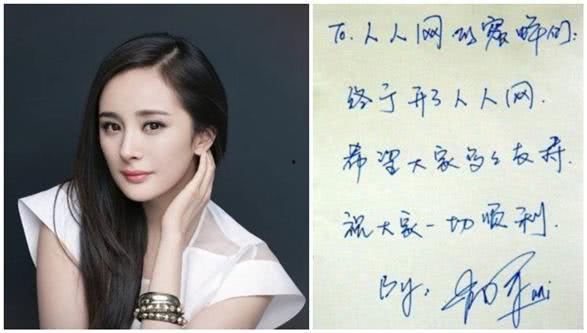 To. 人人网的蜜蜂们:
终于开了人人网.
希望大家多多支持.
祝大家一切顺利.
By.